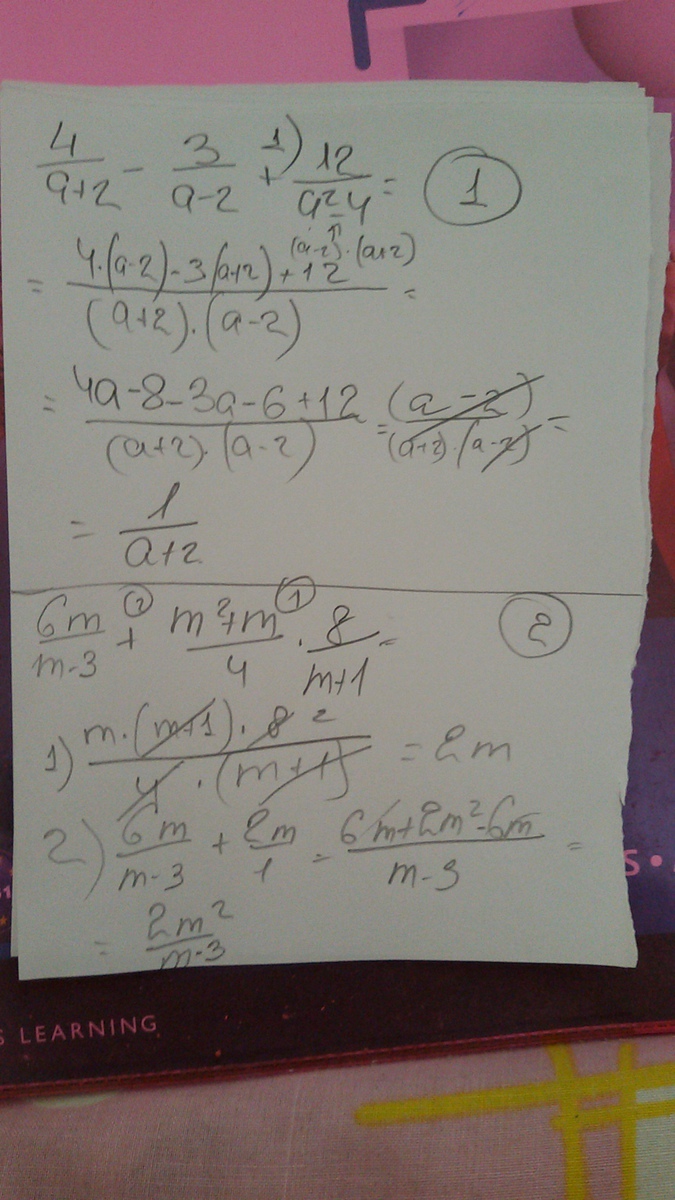 4/(a+2) - 3/(a-2) + 1) 12/(a²-4) = (1)
(a-2)·(a+2)
= (4·(a-2)-3(a+2)+12)/((a+2)·(a-2)) =
= (4a-8-3a-6+12)/((a+2)·(a-2)) = (a-2)/((a+2)·(a-2)) =
= 1/(a+2)
6m/(m-3) + (2) (m²+m)/4 (1) · 8/(m+1) = (2)
1) (m·(m+1)·8 2)/(4·(m+1)) = 2m
2) 6m/(m-3) + 2m/1 = (6m+2m²-6m)/(m-3) =
= 2m²/(m-3)
S LEARNING
S